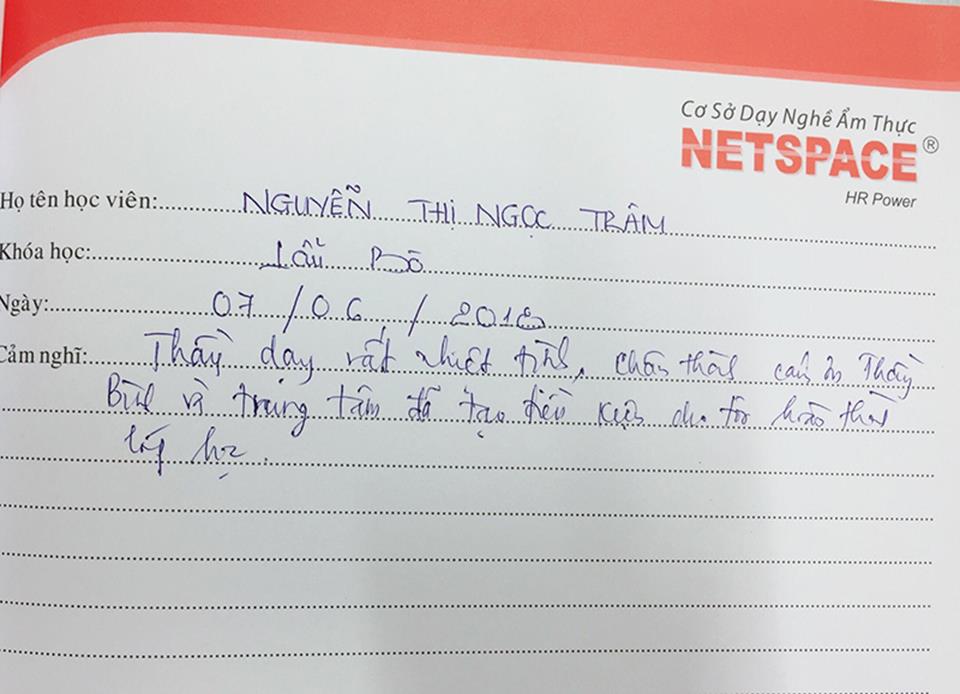 Cơ Sở Dạy Nghề Ẩm Thực
NETSPACE®
HR Power
Họ tên học viên: NGUYỄN THỊ NGỌC TRÂM
Khóa học: Lẩu Bò
Ngày: 07/06/2018
Cảm nghĩ: Thầy dạy rất nhiệt tình, chân thành cảm ơn Thầy
Bình và trung tâm đã tạo điều kiện cho tôi hoàn thành
lớp học.